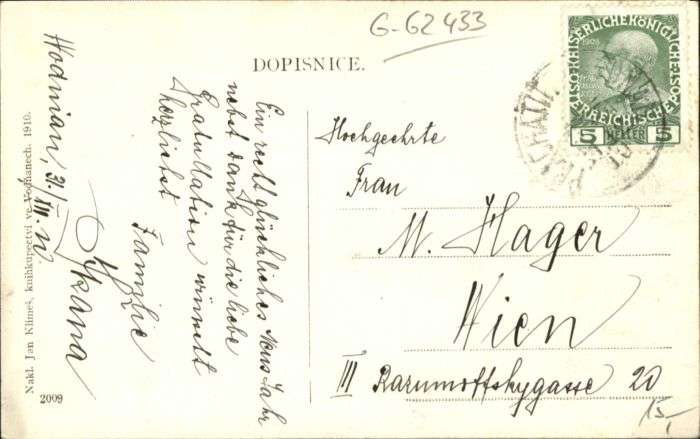 G-62433
DOPISNICE.
KAISERLICHE KÖNIGLICHE
ÖSTERREICHISCHE POST
5 HELLER 5
PRACHATIC
Hochgeehrte
Frau
M. Hager
Wien
III Razumoffskygasse 20
15,-
Ein recht glückliches Neus Jahr
nebst dank für die liebe
Gratullation wünscht
herzlichst
Familie
Wodnian, 31./III.
Nakl. Jan Nílmeš, knihkupectví ve Vodňanech. 1910.
2009